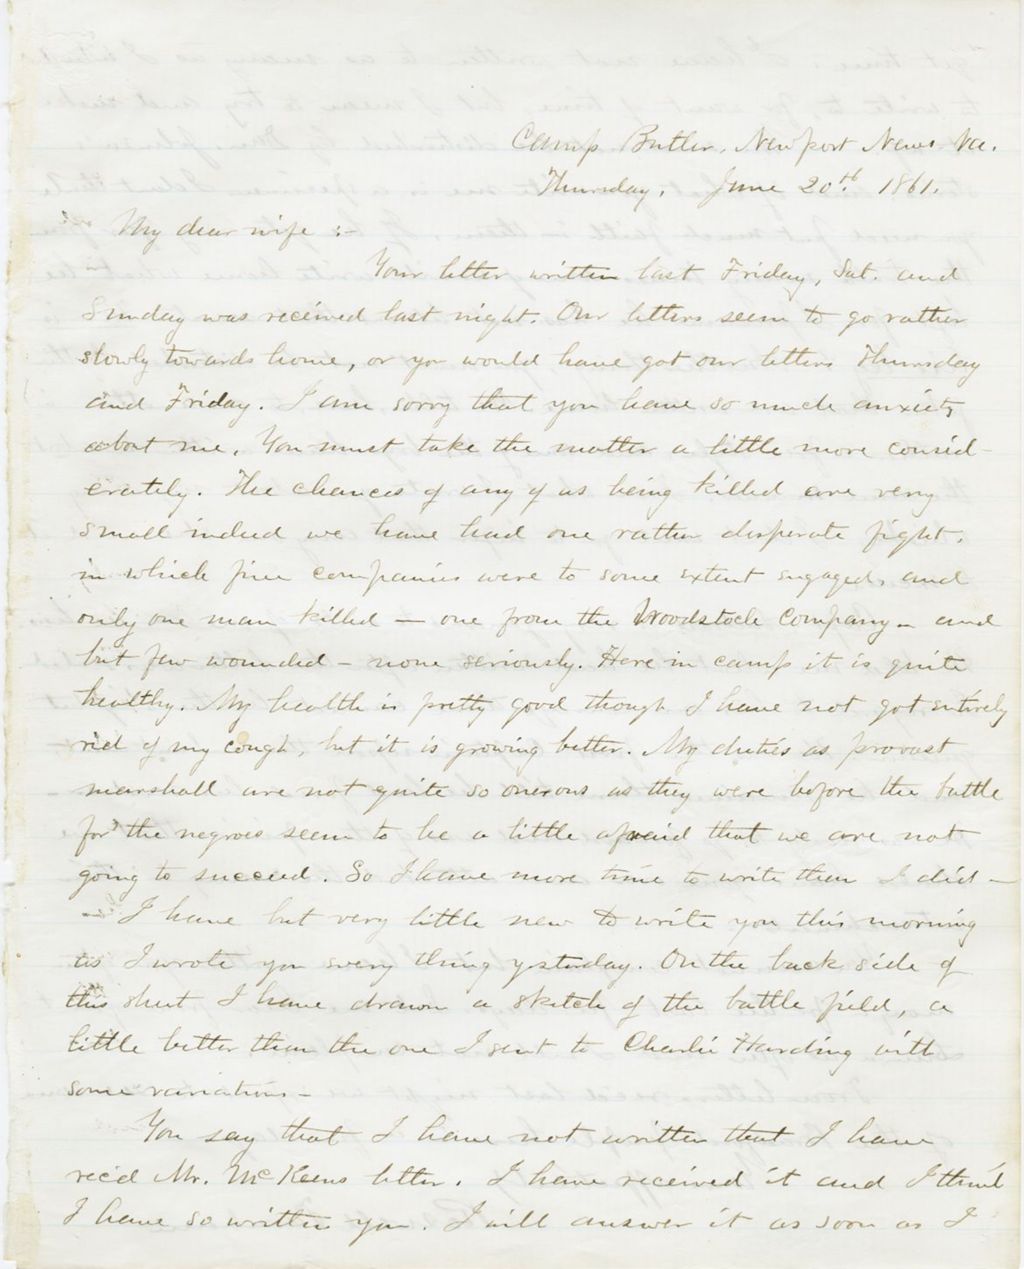 Camp Butler, Newport News Va.
Thursday, June 20th 1861.
My dear wife :-
Your letter written last Friday, Sat. and
Sunday was received last night. Our letters seem to go rather
slowly towards home, or you would have got our letters Thursday
and Friday. I am sorry that you have so much anxiety
about me. You must take the matter a little more consid-
erately. The chances of any of us being killed are very
small indeed we have had one rather desperate fight,
in which five companies were to some extent engaged, and
only one man killed — one from the Woodstock Company — and
but few wounded — none seriously. Here in camp it is quite
healthy. My health is pretty good though I have not got entirely
rid of my cough, but it is growing better. My duties as provost
marshall are not quite so onerous as they were before the battle
for the negroes seem to be a little afraid that we are not
going to succeed. So I have more time to write than I did —
I have but very little new to write you this morning
as I wrote you every thing yesterday. On the back side of
this sheet I have drawn a sketch of the battle field, a
little better than the one I sent to Charlie Harding with
some variations —
You say that I have not written that I have
rec'd Mr. McKeens letter. I have received it and I think
I have so written you. I will answer it as soon as I